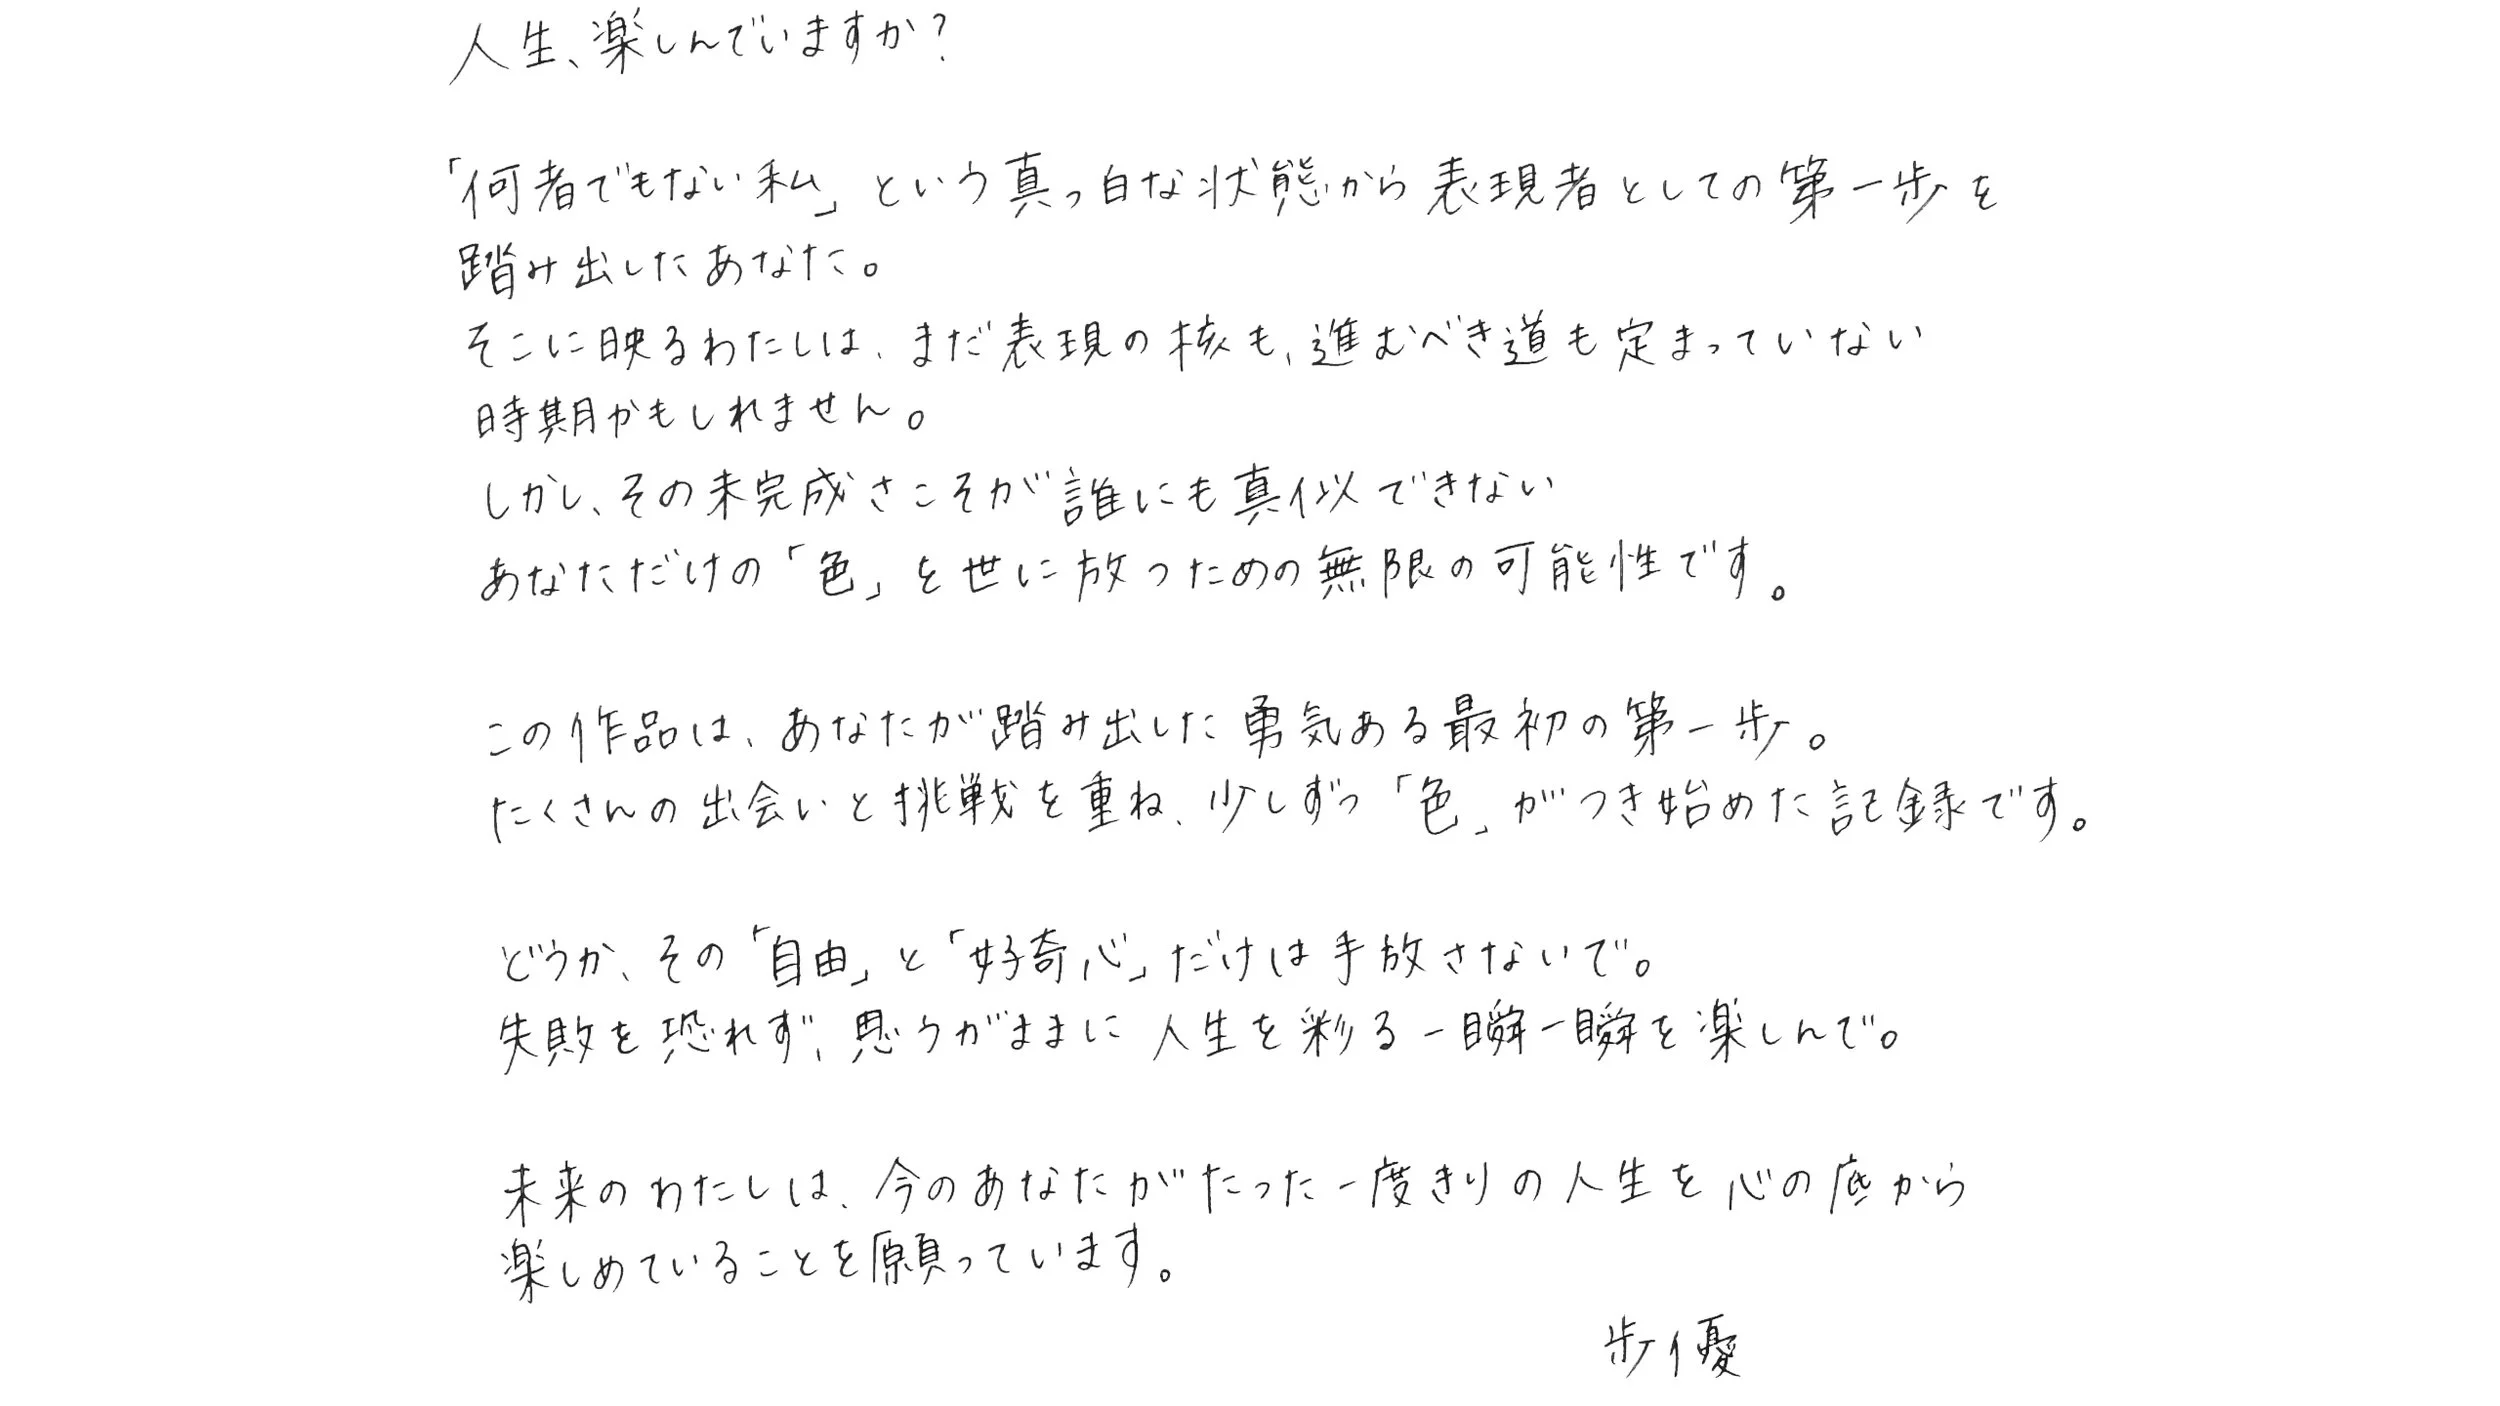 人生、楽しんでいますか?
「何者でもない私」という真っ白な状態から表現者としての第一歩を
踏み出したあなた。
そこに映るわたしは、まだ表現の核も、進むべき道も定まっていない
時期かもしれません。
しかし、その未完成さこそが誰にも真似できない
あなただけの「色」を世に放つための無限の可能性です。
この作品は、あなたが踏み出した勇気ある最初の第一歩。
たくさんの出会いと挑戦を重ね、少しずつ「色」がつき始めた記録です。
どうか、その「自由」と「好奇心」だけは手放さないで。
失敗を恐れず、思うがままに人生を彩る一瞬一瞬を楽しんで。
未来のわたしは、今のあなたがたった一度きりの人生を心の底から
楽しめていることを願っています。
歩優